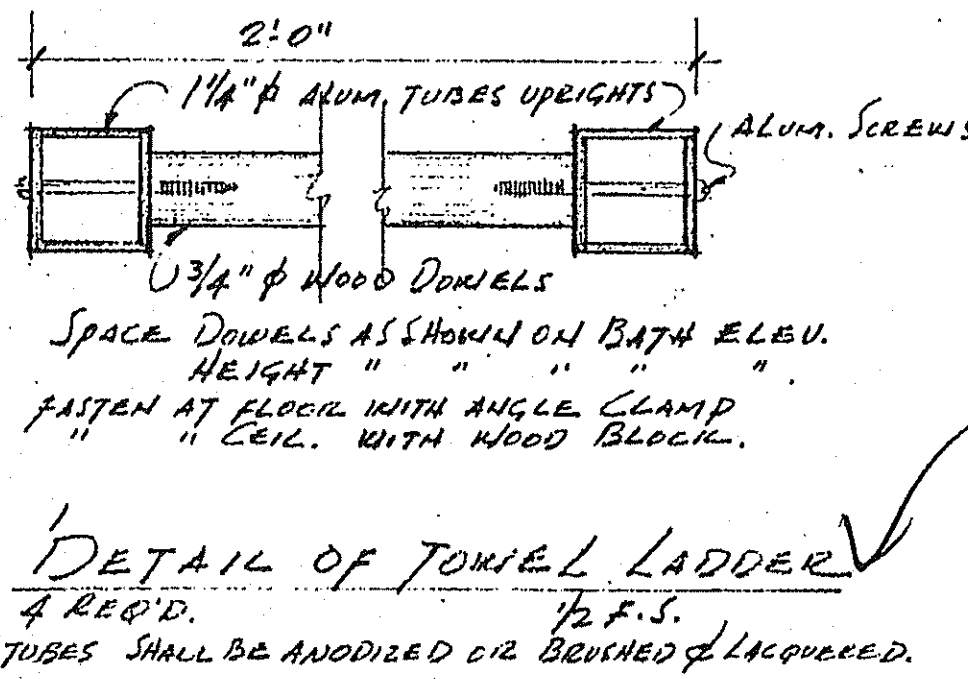 2'-0"
1 1/4" φ ALUM. TUBES UPRIGHTS
ALUM. SCREWS
3/4" φ WOOD DOWELS
SPACE DOWELS AS SHOWN ON BATH ELEV.
HEIGHT " " " " ".
FASTEN AT FLOOR WITH ANGLE CLAMP
" " CEIL. WITH WOOD BLOCK.
DETAIL OF TOWEL LADDER
4 REQ'D. 1/2 F.S.
TUBES SHALL BE ANODIZED OR BRUSHED & LACQUERED.